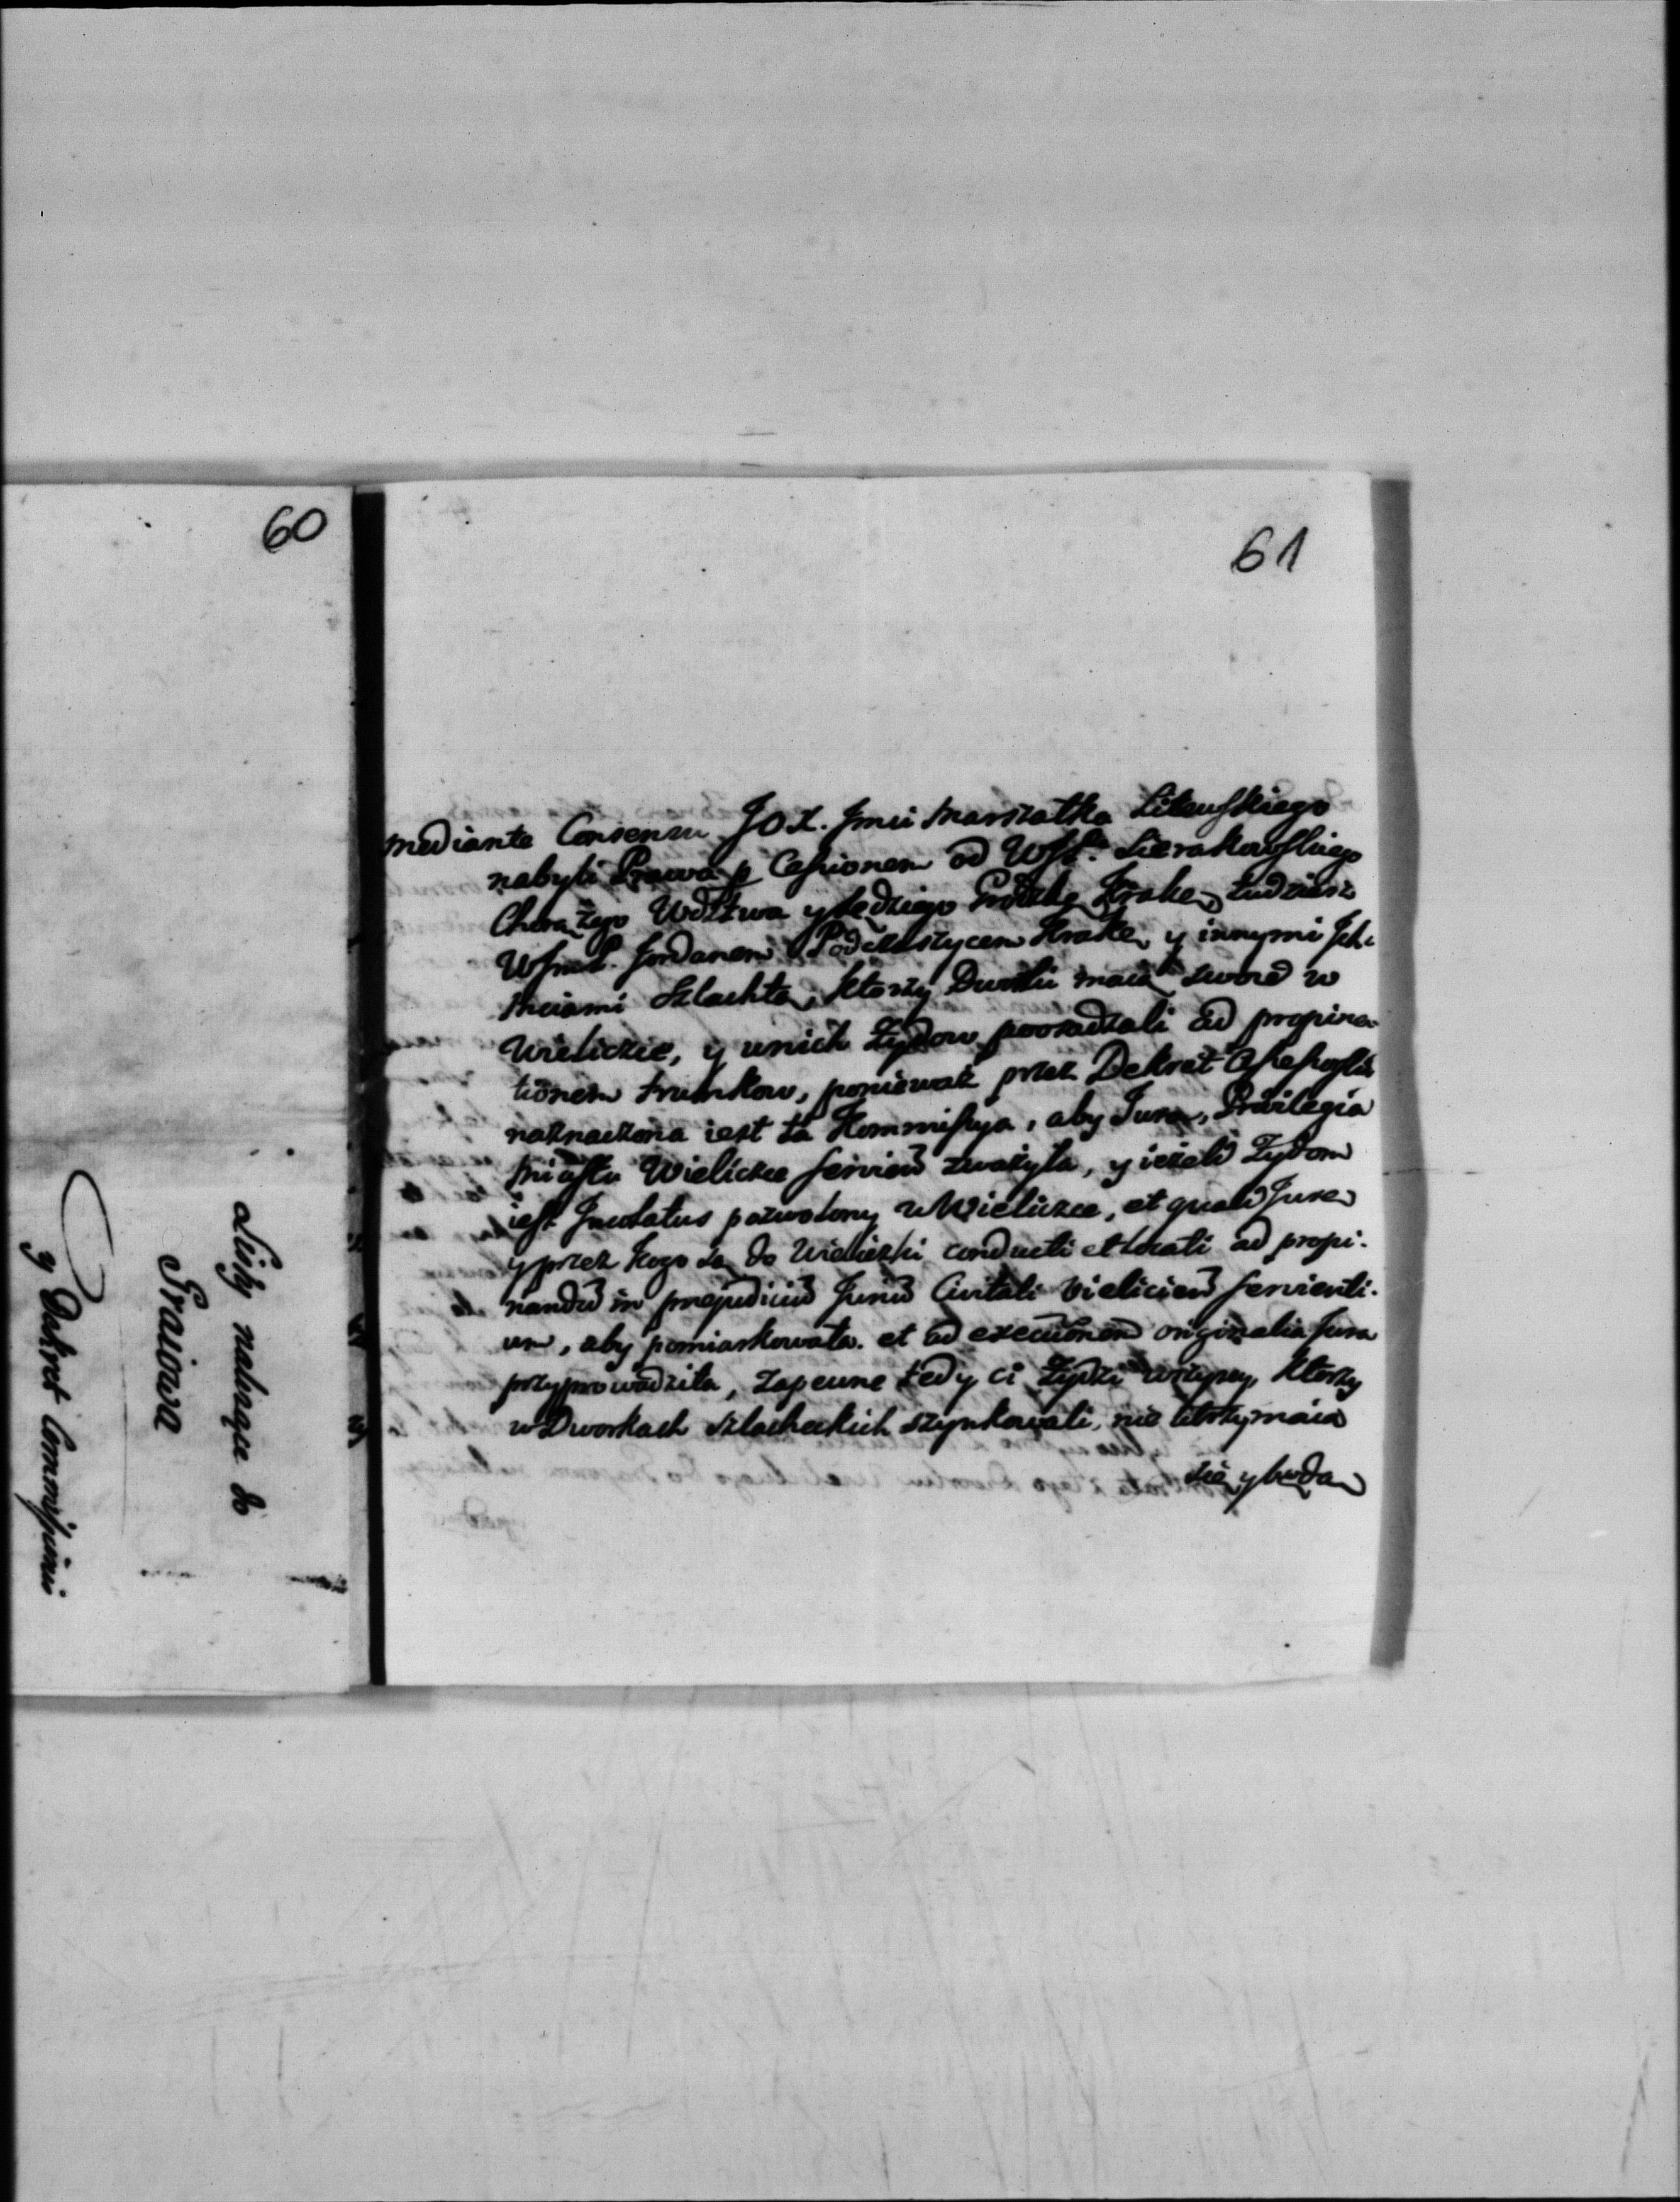 60
Listy nalezące do
Graiowa
y Dekret Commissinis
61
mediante Consensu JOX. Jmci Marszałka Litewskiego
nabyli Prawa p Cessionem od Sierakowskiego
Chorążego Wdztwa y Sędziego Grodzkg Krakeg tudziesz
Jordanem Podczaszycem Krake y innymi Ich
Mciami Szlachtą, ktorzy Dworki maią swoie w
Wieliczce, y wnich Zydow poosadzali ad propina-
tionem trunkow, poniewaz przez Dekret Assessorski
naznaczona iest ta Kommissya, aby Jura, Privilegia
Miastu Wieliczce servien zwazyła, y iezeli Zydom
iest Incolatus pozwolony w Wieliczce, et quali Jure
y przez kogo są do Wieliczki conducti et locati ad propi-
nandu in prejudiciu Juriu Civitati Vielicien servienti-
um, aby pomiarkowała. et ad executionem originalia Jura
przyprowadziła, Zapewne tedy ci Zydzi wszyscy, ktorzy
w Dworkach szlacheckich szynkowali, nie utrzymaią
się y będą